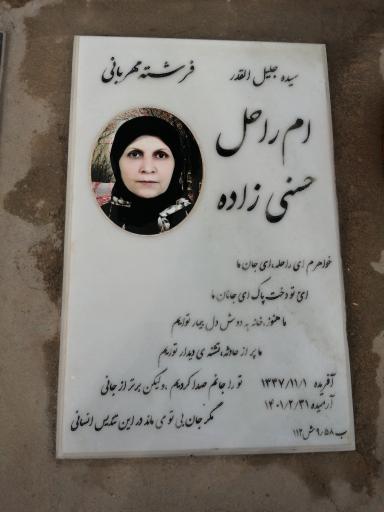 سیده جلیل القدر فرشته مهربانی
ام راحل
حسنی زاده
خواهرم ای راحله، ای جان ما
ای تو دخت پاک ای جانان ما
ما هنوز، خانه به دوش دل بیمار توایم
ما پر از حادثه، تشنه ی دیدار توایم
آفریده ۱۳۳۷/۱۱/۱ تو را جانم صدا کردیم، ولیکن برتر از جانی
آرمیده ۱۴۰۱/۲/۳۱
مگر جان بی تو می ماند در این تندیس انسانی
ب ۹/۵۸ ش ۱۱۲